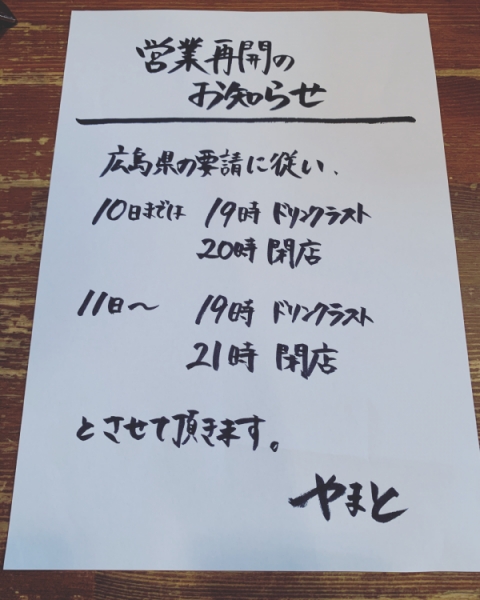 営業再開の
お知らせ
広島県の要請に従い、
10日までは 19時 ドリンクラスト
20時 閉店
11日〜 19時 ドリンクラスト
21時 閉店
とさせて頂きます。
やまと